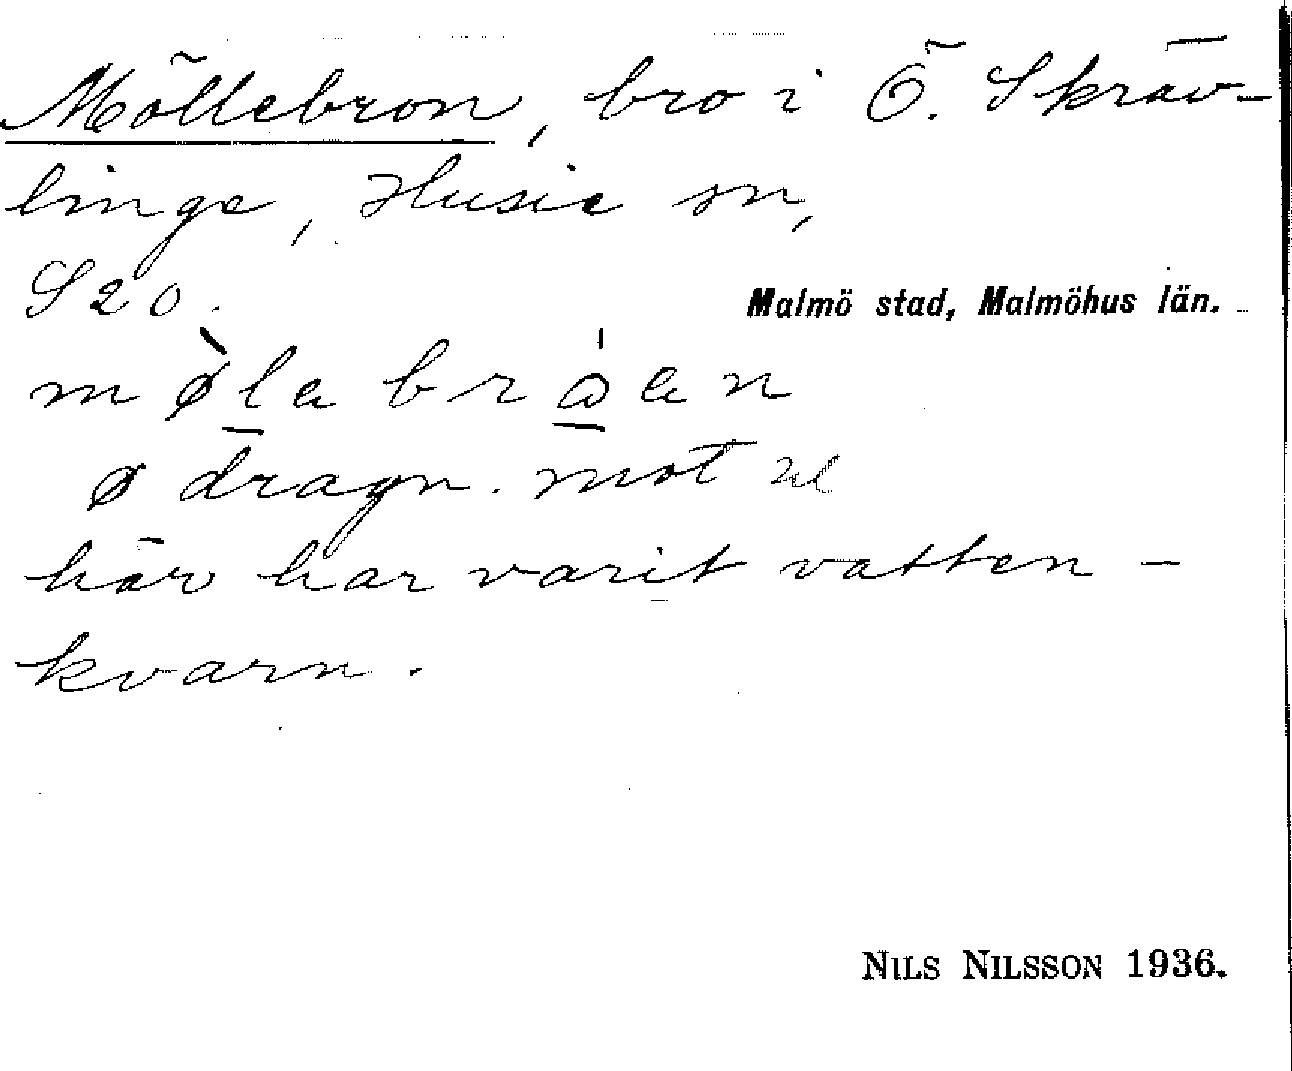 Möllebron, bro i Ö. Skräv-
linge, Husie sn,
S 20.
Malmö stad, Malmöhus län.
ø dragn. mot
här har varit vatten-
kvarn.
NILS NILSSON 1936.